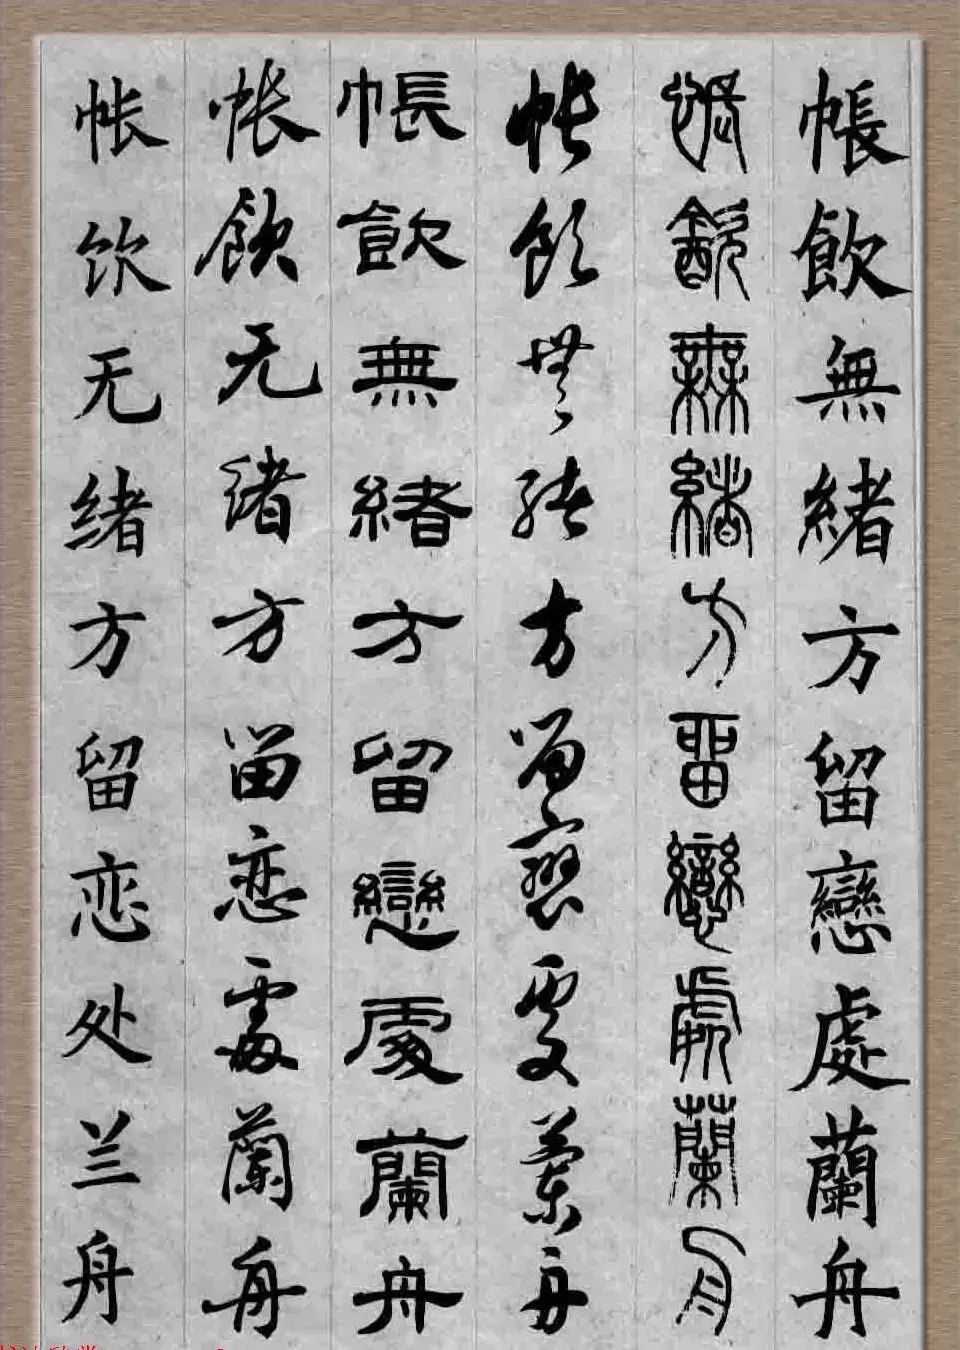 帳飲無緒方留戀處蘭舟
帳飲無緒方留戀處蘭舟
帳飲無緒方留戀處蘭舟
帳飲無緒方留戀處蘭舟
帐飲无绪方留恋處蘭舟
帐饮无绪方留恋处兰舟